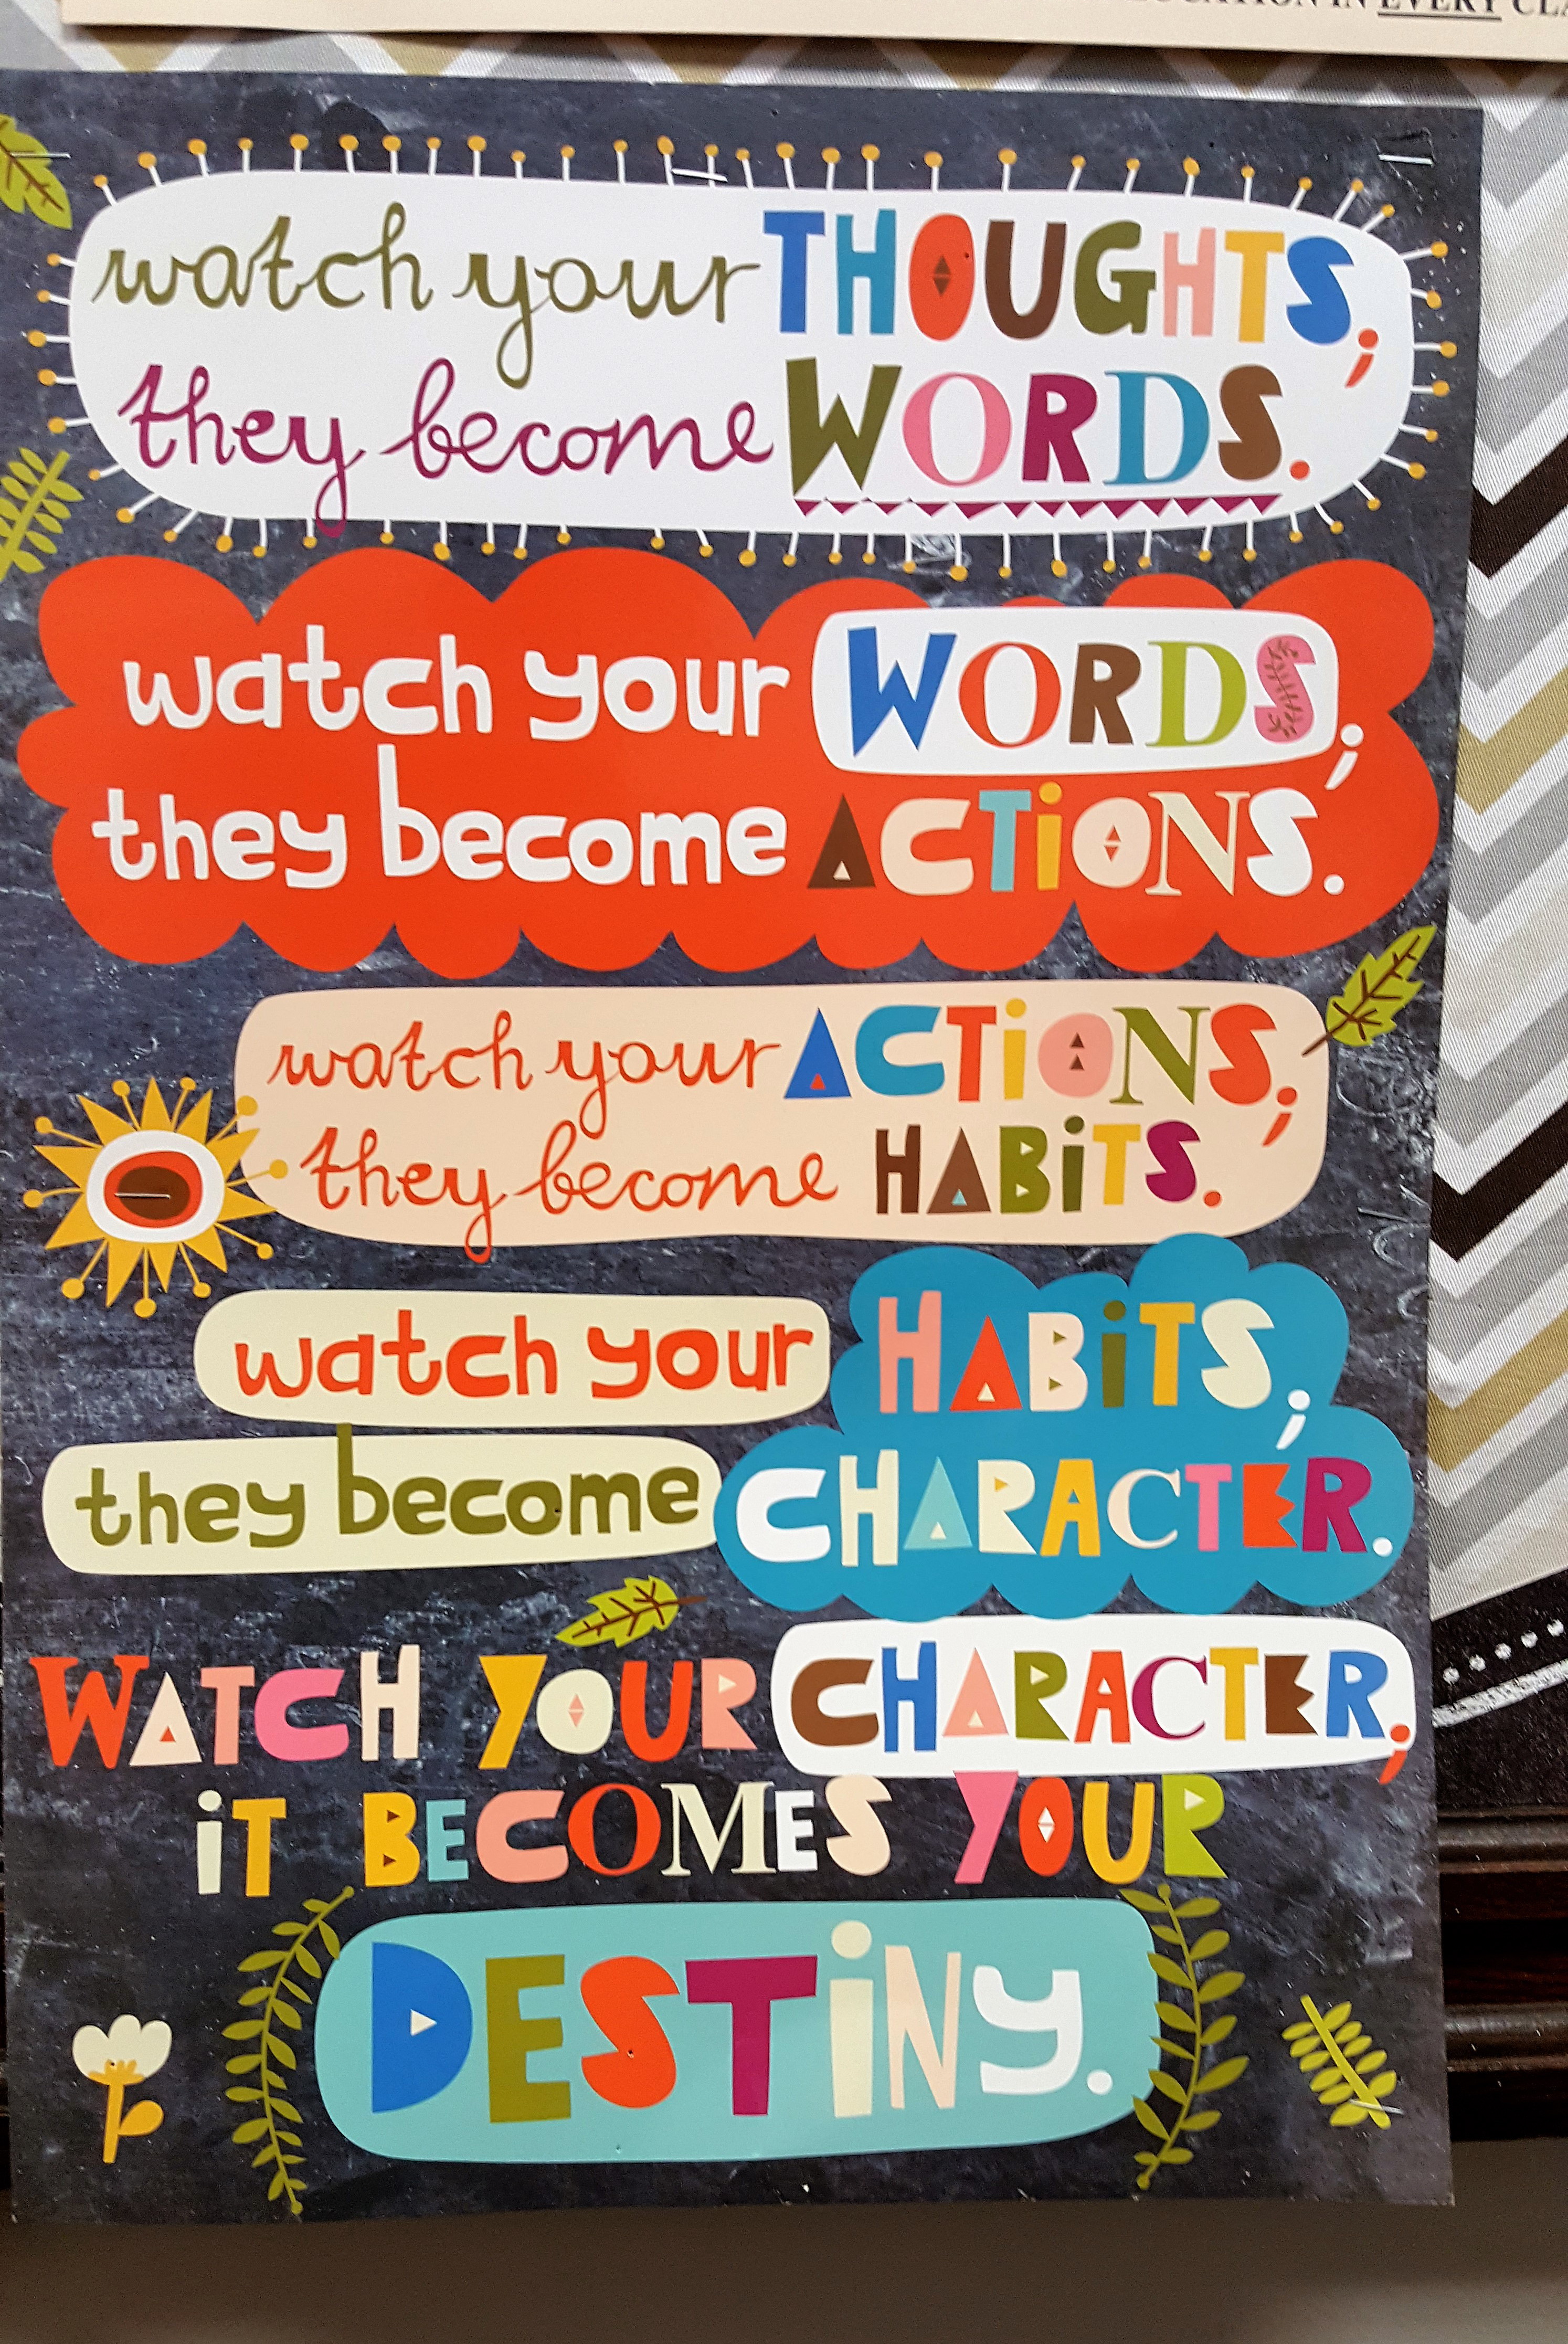 IN EVERY
watch your THOUGHTS;
they become WORDS.
watch your WORDS;
they become ACTiONS.
watch your ACTiONS;
they become HABiTS.
watch your HABiTS;
they become CHARACTER.
WATCH YOUR CHARACTER;
iT BECOMES YOUR
DESTiNy.